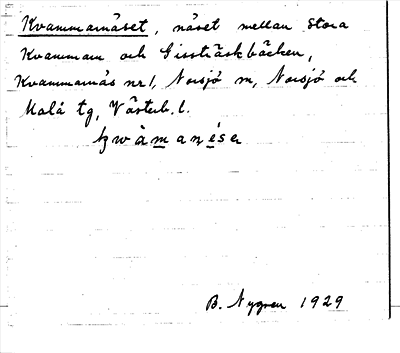 Kvammarnäset, näset mellan Stora
Kvamman och Gissträskbäcken,
Kvammarnäs nr 1, Norsjö sn, Norsjö och
Malå tg, Västerb. l.
B. Nygren 1929